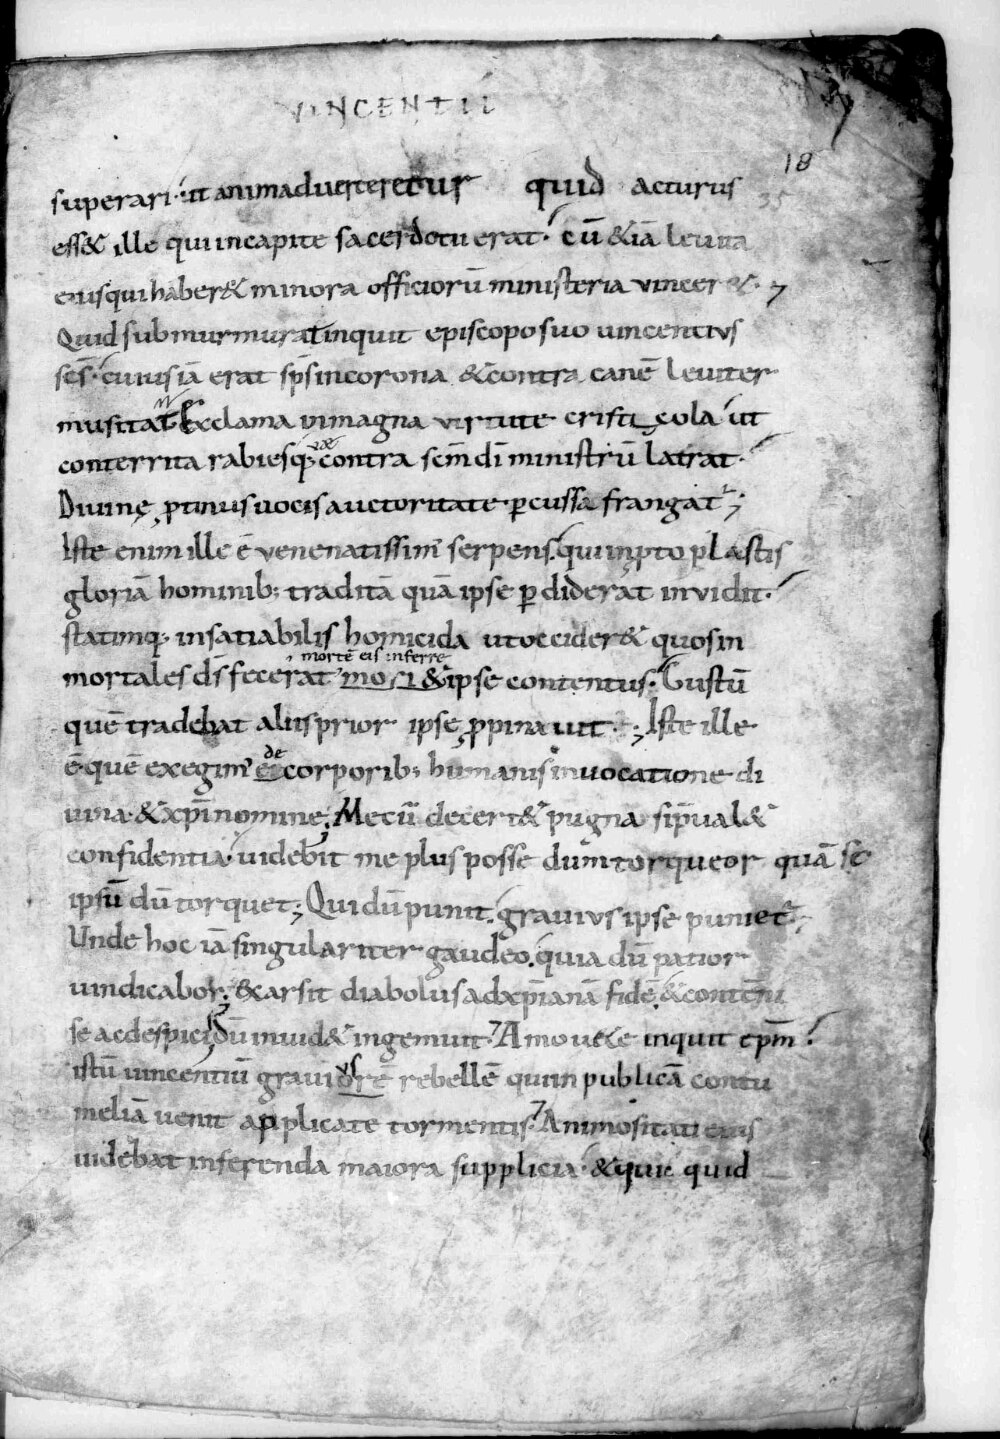 VINCENTII
18
35
superari· ut animadverteretur quid acturus
ess& ille qui incapite sacerdotu erat· cū &iā levita
eius qui haber& minora officiorū ministeria vincer&·
Quid submurmurat inquit episcopo suo vincentius
scs̄· cuius iā erat sps̄ incorona &contra canē leviter
musitat Exclama inmagna virtute cristi ut
conterrita rabies q; vae contra scm̄ dī ministrū latrat·
Divinę ꝓtinus vocis auctoritate· ꝑcussa frangat᷑;
Iste enim ille ē venenatissim᾽ serpens· qui inpto plastis
gloriā hominib; traditā quā ipse ꝑdiderat invidit·
statimq; insatiabilis homicida utoccider& quos in
morte eis inferre
mortales ds̄ fecerat &ipse contentus· Gustū
quē tradebat aliis prior ipse ꝓpinavit·; Iste ille
de
ē· quē exegim᾽ corporib; humanis invocatione di
vina· &xpī nomine; Mecū decert& pugna sip̄val&
confidentia· videbit me plus posse dum torqueor quā se
ipsū dū torquet; Qui dū punit· gravius ipse puniet᷑;
Unde hoc iā singulariter gaudeo· quia dū patior
vindicabor; exarsit diabolus adxpīanā fidē· &contēni
se acdespici dū invid& ingemuit· Amovete inquit epm̄
us
istū vincentiū graviorē rebellē quiin publicā contu
meliā venit applicate tormentis· Animositati eius
videbat inferenda maiora supplicia· &qui quid